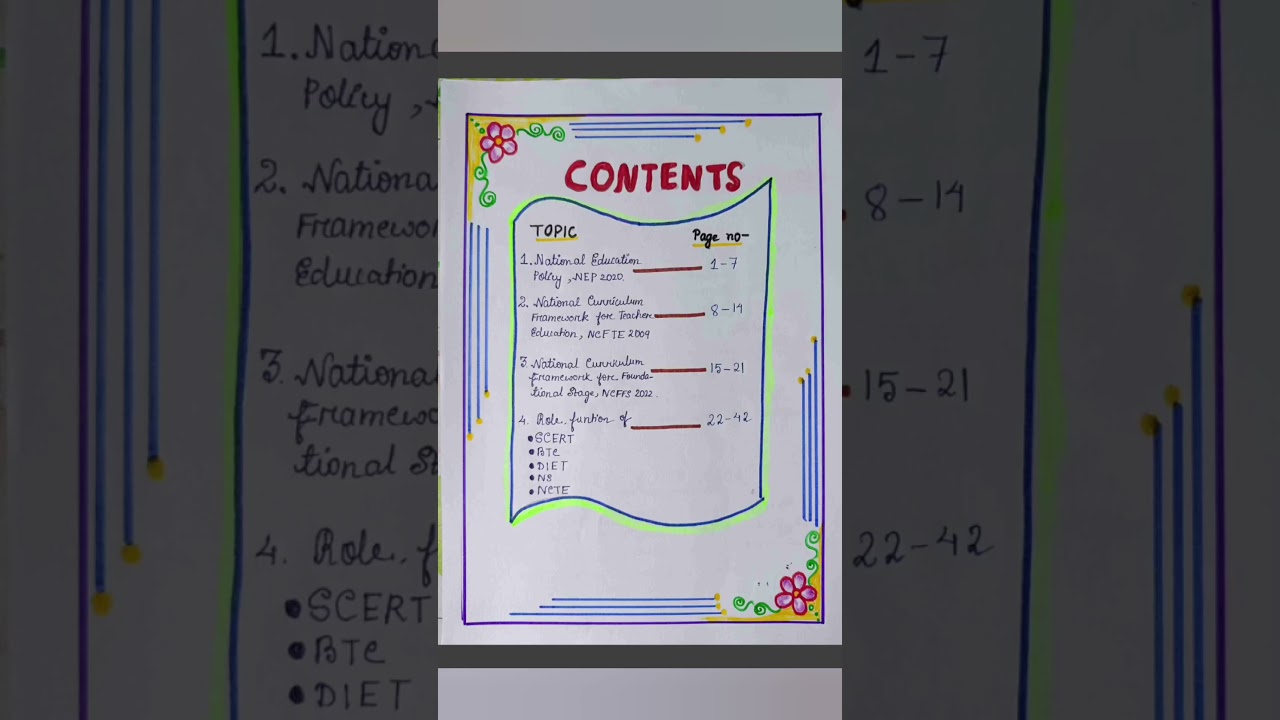 CONTENTS
TOPIC Page no-
1. National Education 1-7
Policy, NEP 2020.
2. National Curriculum
Framework for Teacher 8-14
Education, NCFTE 2009
3. National Curriculum 15-21
framework for Founda-
tional Stage, NCFFS 2022.
4. Role, funtion of 22-42
• SCERT
• BTC
• DIET
• NS
• NCTE